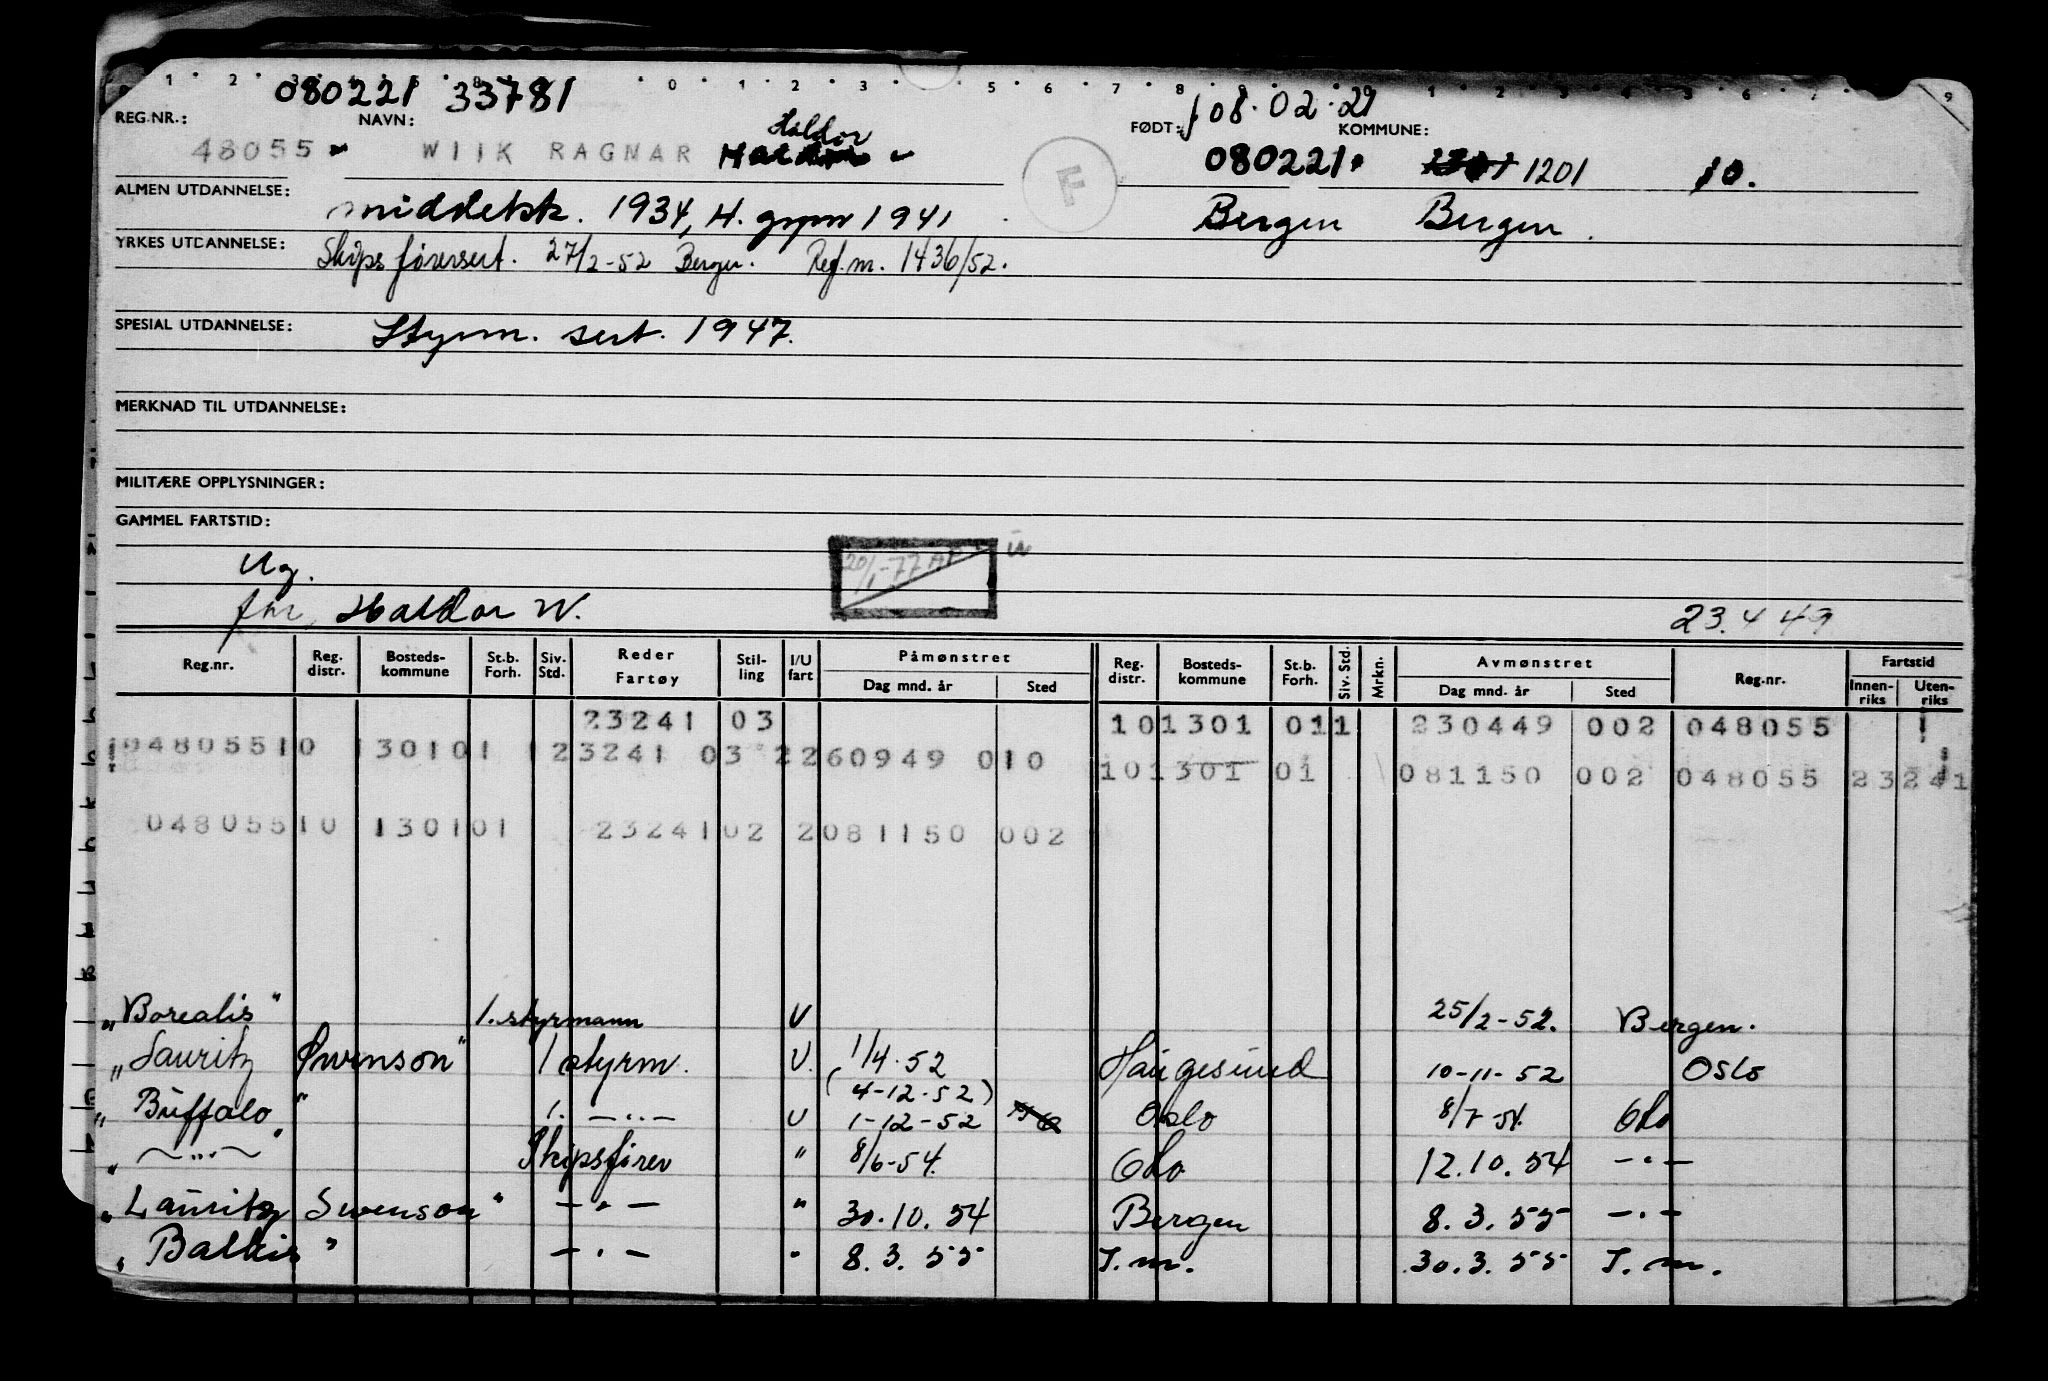 1 2 3 4 5 8 0 1 2 3 5 6 7 8 9 0 1 2 3 4 5 6 7 9
080221 33781
REG.NR.: NAVN: FØDT: f 08.02.21 KOMMUNE:
Haldor
48055 WIIK RAGNAR F 080221 1201 10.
ALMEN UTDANNELSE: middelsk. 1934, H. gymn 1941 Bergen Bergen.
YRKES UTDANNELSE: Skipsførersert. 27/2-52 Bergen. Ref.nr. 1436/52.
SPESIAL UTDANNELSE: Styrm. sert. 1947.
MERKNAD TIL UTDANNELSE:
MILITÆRE OPPLYSNINGER:
GAMMEL FARTSTID:
Ug. 20/1-77
far, Haldor W. 23.4 49
Reg.nr. Reg. distr. Bosteds-kommune St.b. Forh. Siv. Std. Reder Fartøy Stil-ling I/U fart Påmønstret Dag mnd. år Sted Reg. distr. Bosteds-kommune St.b. Forh. Siv. Std. Mrkn. Avmønstret Dag mnd. år Sted Reg.nr. Fartstid Innen-riks Uten-riks
23241 03 101301 011 230449 002 048055
04805510 130101 123241 03 2260949 010 101301 01 081150 002 048055 23241
04805510 130101 2324102 2081150 002
"Borealis" 1. styrmann U 25/2-52. Bergen.
"Lauritz Swenson" 1 styrm. U. 1/4.52 Haugesund 10-11-52 Oslo
(4-12-52)
"Buffalo" 1. —"— U 1-12-52 Oslo 8/7-54. Oslo
" —"— " Skipsfører " 8/6-54. Oslo 12.10.54 —"—
"Lauritz Swenson" —"— " 30.10.54 Bergen 8.3.55 —"—
"Balkis" —"— " 8.3.55 T.m. 30.3.55 T.m.